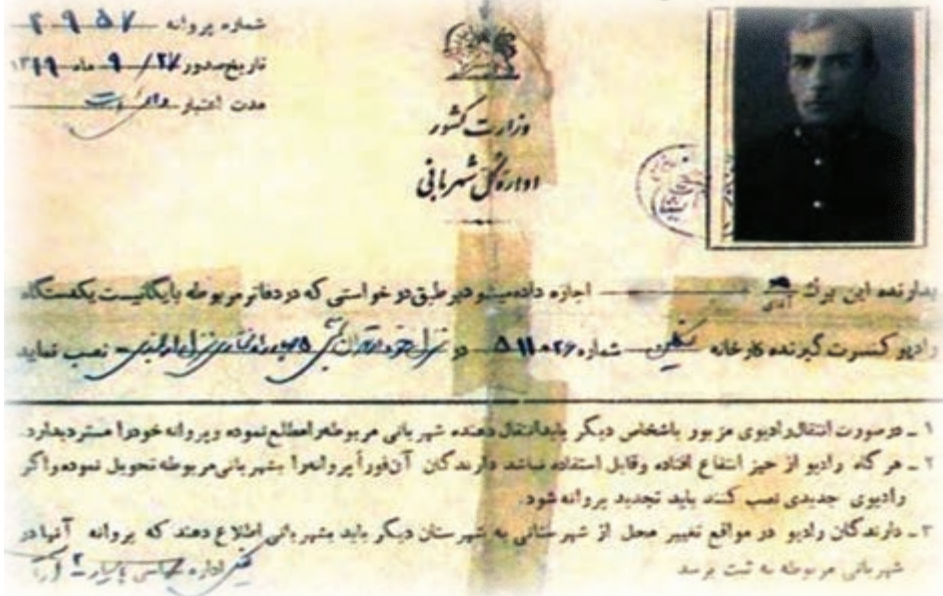 شماره پروانه ۲۹۵۷
تاریخ صدور ۲۷/ ۹ ماه ۱۳۱۹
مدت اعتبار
وزارت کشور
اداره کل شهربانی
بدارنده این برگ آقای اجازه داده میشود بر طبق درخواستی که در دفاتر مربوطه بایگانیست یکدستگاه
رادیو کنسرت گیرنده کارخانه شماره ۵۱۱۰۲۶ در منزل خود نصب نماید
۱ ـ در صورت انتقال رادیوی مزبور باشخاص دیگر باید انتقال دهنده شهربانی مربوطه را مطلع نموده و پروانه خود را مسترد بدارد.
۲ ـ هر گاه رادیو از حیز انتفاع افتاده و قابل استفاده نباشد دارندگان آن فوراً پروانه را بشهربانی مربوطه تحویل نموده و اگر
رادیوی جدیدی نصب کنند باید تجدید پروانه شود.
۳ ـ دارندگان رادیو در مواقع تغییر محل از شهرستانی به شهرستان دیگر باید بشهربانی اطلاع دهند که پروانه آنها در
شهربانی مربوطه به ثبت برسد
اداره سیاسی